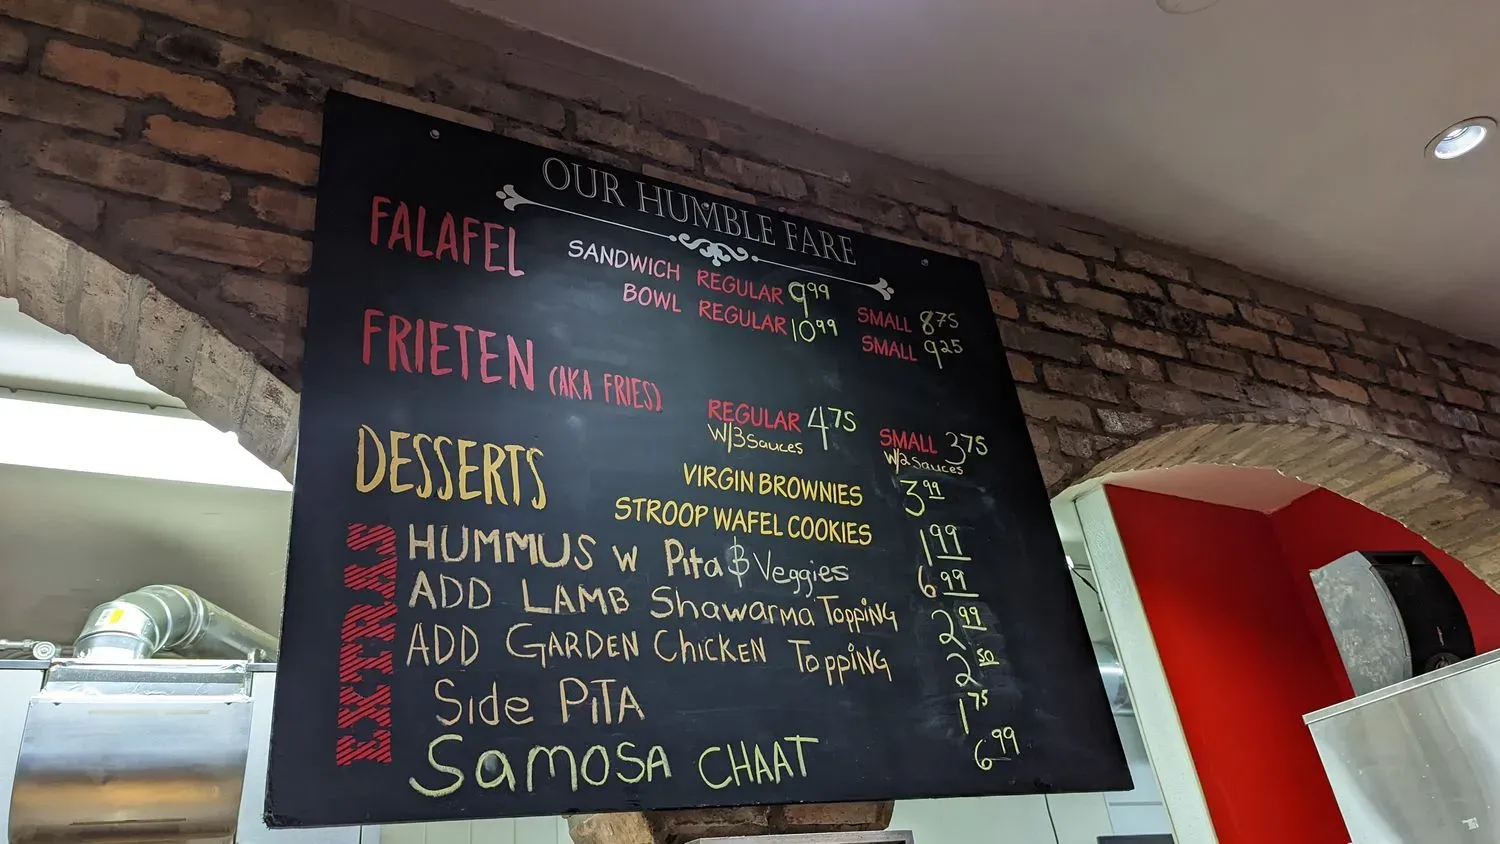 OUR HUMBLE FARE
FALAFEL
SANDWICH REGULAR 9.99 SMALL 8.75
BOWL REGULAR 10.99 SMALL 9.25
FRIETEN (AKA FRIES)
REGULAR 4.75 SMALL 3.75
W/3 Sauces W/2 Sauces
DESSERTS
VIRGIN BROWNIES 3.99
STROOP WAFEL COOKIES 1.99
EXTRAS
HUMMUS W Pita & Veggies 6.99
ADD LAMB Shawarma Topping 2.99
ADD GARDEN Chicken Topping 2.50
Side PiTA 1.75
SamoSA CHAAT 6.99